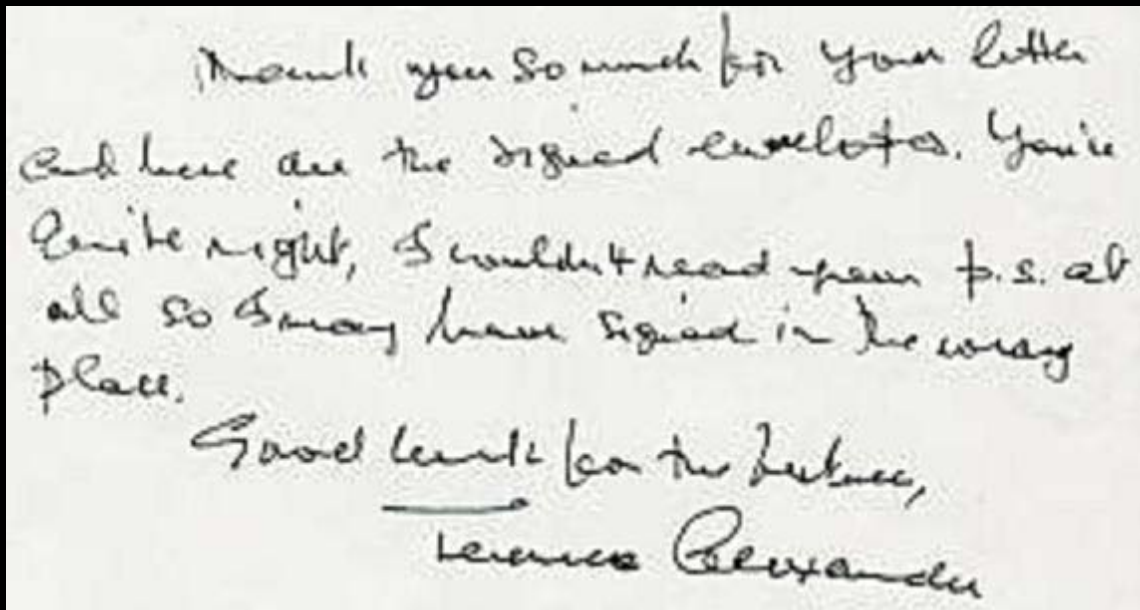 Thank you so much for your letter
and here are the signed envelopes. You're
quite right, I couldn't read your p.s. at
all so I may have signed in the wrong
place.
Good luck for the future,
Terence Alexander